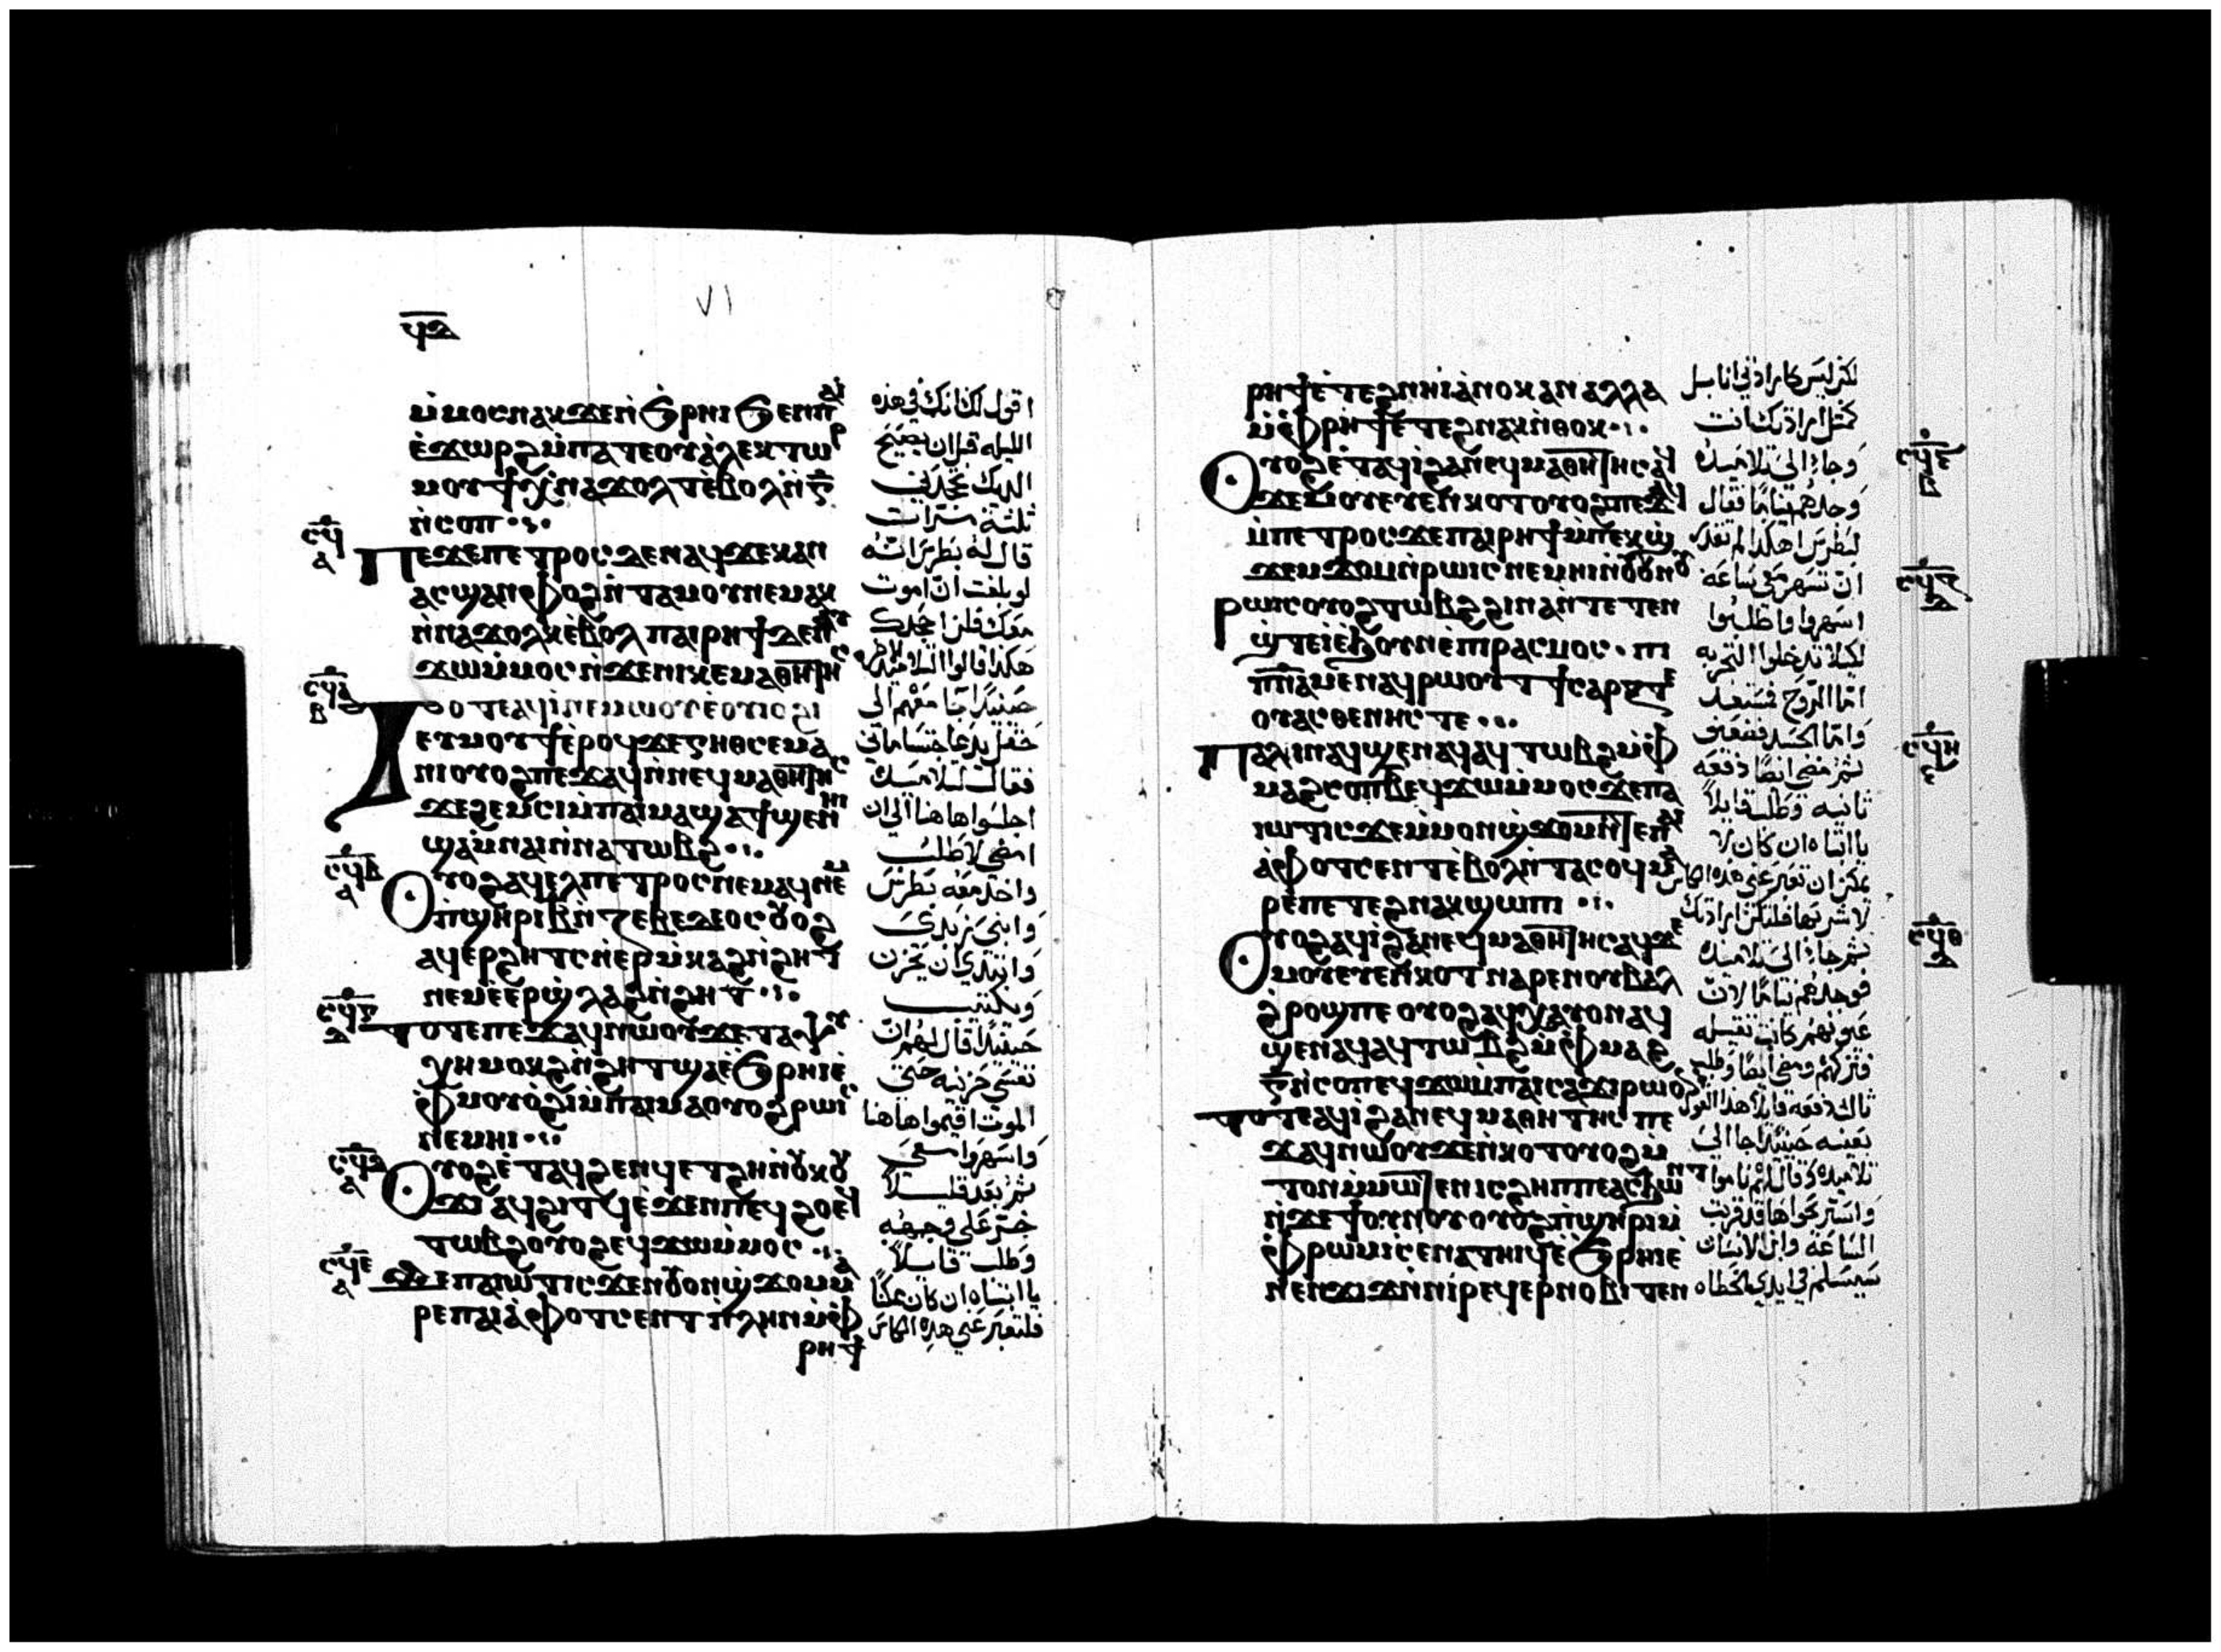 ϥⲇ
٧١
ⲙ̇ⲙⲟⲥ ⲛⲁⲕ ϫⲉ ⲛ̇ϧⲣⲏⲓ ϧⲉⲛ ⲡⲁⲓ
ⲉ̇ϫⲱⲣϩ ⲙ̇ⲡⲁⲧⲉ ⲟⲩⲁ̇ⲗⲉⲕⲧⲱⲣ
ⲙⲟⲩϯ ⲭ̇ⲛⲁϫⲟⲗⲧ ⲉ̇ⲃⲟⲗ ⲛ̇ⲅ̅
ⲛ̇ⲥⲟⲡ
ⲡⲉϫⲉ ⲡⲉⲧⲣⲟⲥ ⲇⲉ ⲛⲁϥ ϫⲉ ⲕⲁⲛ
ⲁⲥϣⲁⲛⲫⲟϩ ⲛ̇ⲧⲁⲙⲟⲩ ⲛⲉⲙⲁⲕ
ⲛ̇ⲛⲁϫⲟⲗⲕ ⲉ̇ⲃⲟⲗ ⲡⲁⲓⲣⲏϯ ⲇⲉ ⲛⲁⲩ
ϫⲱ ⲙ̇ⲙⲟⲥ ⲛ̇ϫⲉ ⲛⲓⲕⲉⲙⲁⲑⲏⲧⲏⲥ
ⲧⲟⲧⲉ ⲁϥⲓ̇ ⲛⲉⲙⲱⲟⲩ ⲉ̇ⲟⲩⲓⲟϩⲓ
ⲉⲩⲙⲟⲩϯ ⲉ̇ⲣⲟϥ ϫⲉ ⲅⲏⲑⲥⲉⲙⲁ
ⲛⲓ ⲟⲩⲟϩ ⲡⲉϫⲁϥ ⲛ̇ⲛⲉϥⲙⲁⲑⲏⲧⲏⲥ
ϫⲉ ϩⲉⲙⲥⲓ ⲙ̇ⲡⲁⲓⲙⲁ ϣⲁϯϣⲉⲛⲏⲓ
ϣⲁ ⲙ̇ⲛⲁⲓ ⲛ̇ⲛⲁⲧⲱⲃϩ
ⲟⲩⲟϩ ⲁϥⲉⲗ ⲡⲉⲧⲣⲟⲥ ⲛⲉⲙⲁϥ ⲛⲉⲙ
ⲡϣⲏⲣⲓ ⲃ̅ ⲛ̇ⲍⲉⲃⲉⲇⲉⲟⲥ ⲟⲩⲟϩ
ⲁϥⲉⲣϩⲏⲧⲥ ⲛ̇ⲉⲣⲙ̇ⲕⲁϩ ⲛ̇ϩⲏⲧ
ⲛⲉⲙ ⲉ̇ⲉⲣϣ̇ⲗⲁϩ ⲛ̇ϩⲏⲧ
ⲧⲟⲧⲉ ⲡⲉϫⲁϥ ⲛⲱⲟⲩ ϫⲉ ⲧⲁⲯⲩ
ⲭⲏ ⲙⲟⲕϩ ⲛ̇ϩⲏⲧ ϣⲁ ⲉ̇ϧⲣⲏⲓ ⲉ̇
ⲫⲙⲟⲩ ⲟ̇ϩⲓ ⲙ̇ⲡⲁⲓⲙⲁ ⲟⲩⲟϩ ⲣⲱⲓⲥ
ⲛⲉⲙⲏⲓ
ⲟⲩⲟϩ ⲉ̇ⲧⲁϥϩⲉⲛϥ ⲉⲧϩⲏ ⲛ̇ⲟⲩⲕⲟⲩ
ϫⲓ ⲁϥϩⲓⲧϥ ⲉ̇ϫⲉⲛ ⲡⲉϥϩⲟ ⲉϥ
ⲧⲱⲃϩ ⲟⲩⲟϩ ⲉϥϫⲱ ⲙ̇ⲙⲟⲥ
ϫⲉ ⲡⲁⲓⲱⲧ ⲓⲥϫⲉ ⲟⲩⲟⲛ ϣ̇ϫⲟⲙ ⲙⲁ
ⲣⲉ ⲡⲁⲓⲁ̇ⲫⲟⲧ ⲥⲉⲛⲧ ⲡⲗⲏⲛ ⲙ̇ⲫ
ⲣⲏϯ
اقول لك انك في هذه
الليله قبل ان يصيح
الديك تجحدني
ثلثة مرات
قال له بطرس انه
لو بلغت ان اموت
معك فلن اجحدك
هكذا قالوا التلاميذ
حينيذ جا معهم الى
حقل يدعا جتسامانى
فقال لتلاميذه
اجلسوا هاهنا الى ان
امضي لاطلب
واخذ معه بطرس
وابني زبدى
وابتدى ان يحزن
ويكتيب
حينيذ قال لهم ان
نفسى حزينه حتى
الموت اقيموا هاهنا
واسهروا معى
ثم بعد قليلا
خر على وجهه
وطلب قايلا
يا ابتاه ان كان ممكنا
فلتعبر عنى هذه الكاس
ⲣⲏϯ ⲉ̇ⲧⲉϩⲛⲏⲓ ⲁ̇ⲛⲟⲕ ⲁⲛ ⲁⲗⲗⲁ
ⲙ̇ⲫⲣⲏϯ ⲉ̇ⲧⲉϩⲛⲁⲕ ⲛ̇ⲑⲟⲕ
ⲟⲩⲟϩ ⲉ̇ⲧⲁϥⲓ̇ ϩⲁ ⲛⲉϥⲙⲁⲑⲏⲧⲏⲥ ⲁϥ
ϫⲉⲙⲟⲩ ⲉⲩⲉⲛⲕⲟⲧ ⲟⲩⲟϩ ⲡⲉϫⲁϥ
ⲙ̇ⲡⲉⲧⲣⲟⲥ ϫⲉ ⲡⲁⲓⲣⲏϯ ⲙ̇ⲡⲉⲕϣ̇
ϫⲉⲙϫⲟⲙ ⲛ̇ⲣⲱⲓⲥ ⲛⲉⲙⲏⲓ ⲛ̇ⲟⲩⲟⲩⲛⲟⲩ
ⲣⲱⲓⲥ ⲟⲩⲟϩ ⲧⲱⲃϩ ϩⲓⲛⲁ ⲛ̇ⲧⲉⲧⲉⲛ
ϣ̇ⲧⲉⲙⲓ̇ ⲉ̇ϧⲟⲩⲛ ⲉ̇ⲡⲓⲣⲁⲥⲙⲟⲥ ⲡⲓ
ⲡ̅ⲛ̅ⲁ̅ ⲙⲉⲛ ⲁϥⲣⲱⲟⲩⲧ ϯⲥⲁⲣⲝ ⲇⲉ
ⲟⲩⲁⲥⲑⲉⲛⲏⲥ ⲧⲉ
ⲡⲁⲗⲓⲛ ⲁϥϣⲉⲛⲁϥ ⲁϥⲧⲱⲃϩ ⲙ̇ⲫ
ⲙⲁϩⲥⲟⲡ ⲃ̅ ⲉϥϫⲱ ⲙ̇ⲙⲟⲥ ϫⲉ ⲡⲁ
ⲓⲱⲧ ⲓⲥϫⲉ ⲙ̇ⲙⲟⲛ ϣ̇ϫⲟⲙ ⲛ̇ⲧⲉ ⲡⲁⲓ
ⲁ̇ⲫⲟⲧ ⲥⲉⲛⲧ ⲉ̇ⲃⲟⲗ ⲛ̇ⲧⲁⲥⲟϥ ⲙⲁ
ⲣⲉ ⲡⲉⲧⲉϩⲛⲁⲕ ϣⲱⲡⲓ
ⲟⲩⲟϩ ⲁϥⲓ̇ ϩⲁ ⲛⲉϥⲙⲁⲑⲏⲧⲏⲥ ⲁϥϫⲉ
ⲙⲟⲩ ⲉⲩⲉⲛⲕⲟⲧ ⲛⲁⲣⲉ ⲛⲟⲩⲃⲁⲗ
ϩ̇ⲣⲟϣ ⲡⲉ ⲟⲩⲟϩ ⲁϥⲭⲁⲩ ⲟⲛ ⲁϥ
ϣⲉⲛⲁϥ ⲁϥⲧⲱⲃϩ ⲙ̇ⲫⲙⲁϩ
ⲅ̅ ⲛ̇ⲥⲟⲡ ⲉϥϫⲱ ⲙ̇ⲡⲁⲓⲥⲁϫⲓ ⲣⲱ
ⲧⲟⲧⲉ ⲁϥⲓ̇ ϩⲁ ⲛⲉϥⲙⲁⲑⲏⲧⲏⲥ ⲡⲉ
ϫⲁϥ ⲛⲱⲟⲩ ϫⲉ ⲛ̇ⲕⲟⲧ ⲟⲩⲟϩ ⲙ̇
ⲧⲟⲛ ⲙ̇ⲙⲱⲧⲉⲛ ⲓⲥ ϩⲏⲡⲡⲉ ⲁⲥϧⲱⲛⲧ
ⲛ̇ϫⲉ ϯⲟⲩⲛⲟⲩ ⲟⲩⲟϩ ⲡ̇ϣⲏⲣⲓ ⲙ̇
ⲫⲣⲱⲙⲓ ⲥⲉⲛⲁⲧⲏⲓϥ ⲉ̇ϧⲣⲏⲓ ⲉ̇
ⲛⲉⲛϫⲓϫ ⲛ̇ⲛⲓⲣⲉϥⲉⲣⲛⲟⲃⲓ ⲧⲉⲛ
لكن ليس كارادتي انا بل
كمثل ارادتك انت
وجا الى تلاميذه
وجدهم نياما فقال
لبطرس اهكذا لم تقدر
ان تسهر معى ساعه
اسهروا واطلبوا
لكيلا تدخلوا التجربه
اما الروح فمستعد
واما الجسد فضعيف
ثم مضى ايضا دفعه
ثانيه وطلب قايلا
يا ابتاه ان كان لا
يمكن ان تعبر عني هذه الكاس
لاشربها فلتكن ارادتك
ثم جا الى تلاميذه
فوجدهم نياما لان
عيونهم كانت ثقيله
فتركهم ومضى ايضا وطلب
ثالث دفعه قايلا هذا القول
بعينه حينيذ جا الى
تلاميذه وقال لهم ناموا
واستريحوا ها قد قربت
الساعه وابن الانسان
سيسلم في ايدي الخطاه